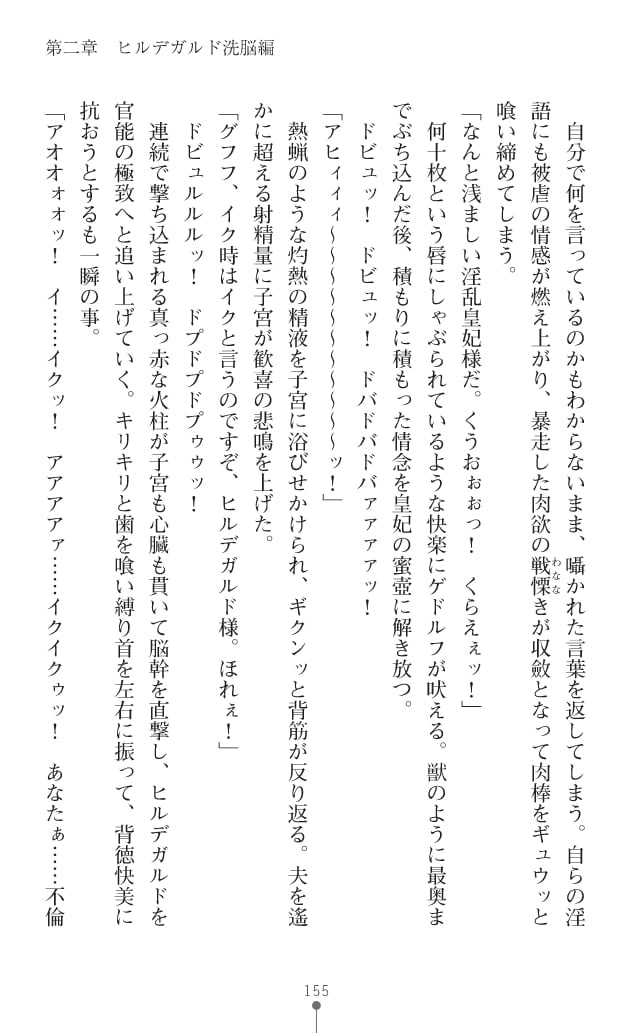 第二章　ヒルデガルド洗脳編
自分で何を言っているのかもわからないまま、囁かれた言葉を返してしまう。自らの淫
語にも被虐の情感が燃え上がり、暴走した肉欲の戦慄きが収斂となって肉棒をギュウッと
喰い締めてしまう。
「なんと浅ましい淫乱皇妃様だ。くうおぉぉっ！　くらえぇッ！」
何十枚という唇にしゃぶられているような快楽にゲドルフが吠える。獣のように最奥ま
でぶち込んだ後、積もりに積もった情念を皇妃の蜜壺に解き放つ。
ドビュッ！　ドビュッ！　ドバドバドバァァァァッ！
「アヒィィィ〜〜〜〜〜〜〜〜〜〜ッ！」
熱蝋のような灼熱の精液を子宮に浴びせかけられ、ギクンッと背筋が反り返る。夫を遙
かに超える射精量に子宮が歓喜の悲鳴を上げた。
「グフフ、イク時はイクと言うのですぞ、ヒルデガルド様。ほれぇ！」
ドビュルルルッ！　ドプドプドプゥゥッ！
連続で撃ち込まれる真っ赤な火柱が子宮も心臓も貫いて脳幹を直撃し、ヒルデガルドを
官能の極致へと追い上げていく。キリキリと歯を喰い縛り首を左右に振って、背徳快美に
抗おうとするも一瞬の事。
「アオオォォッ！　イ……イクッ！　アアアアァ……イクイクゥッ！　あなたぁ……不倫
わなな
155